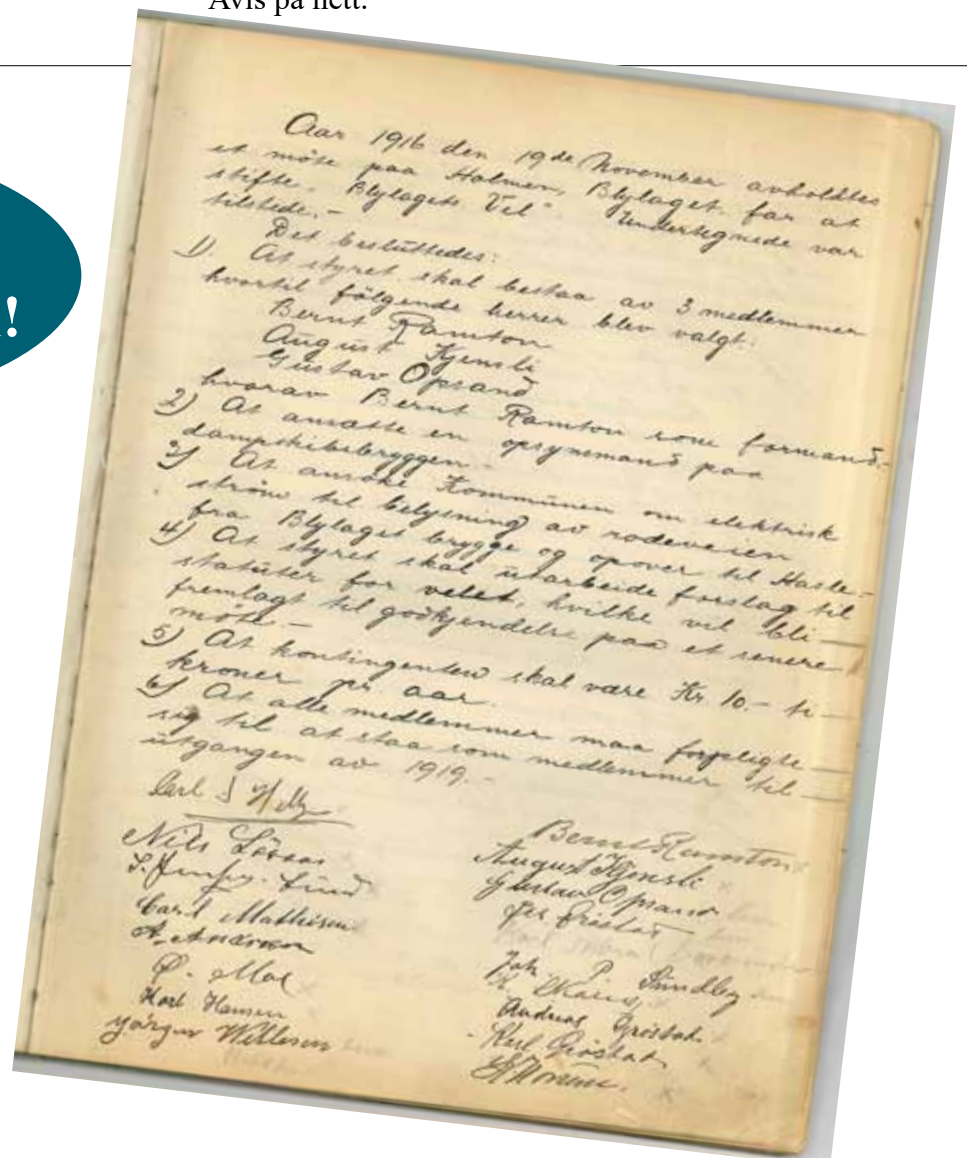 Avis på nett.
!
Aar 1916 den 19de November avholdtes
et möte paa Holmen, Blylaget, for at
stifte "Blylagets Vel" Undertegnede var
tilstede. –
Det besluttedes:
1). At styret skal bestaa av 3 medlemmer
hvortil fölgende herrer blev valgt:
Bernt Ramton
August Kjensli
Gustav Opsand
hvorav Bernt Ramton som formand. –
2) At ansætte en opsynsmand paa
dampskibsbryggen –
3) At ansöke Kommunen om elektrisk
ström til belysning av rodeveien
fra Blylaget brygge og opover til Hasle –
4) At styret skal utarbeide forslag til
statuter for velet, hvilke vil bli
fremlagt til godkjendelse paa et senere
möte –
5) At kontingenten skal være Kr. 10.– ti
kroner pr. aar.
6) At alle medlemmer maa forpligte
sig til at staa som medlemmer til
utgangen av 1919. –
Carl S
Bernt Ramton
Nils
August Kjensli
Lind
Gustav Opsand
Carl Mathisen
Per Gröstad
A. Andersen
Joh. P. Sundby
O. Moe
K.
Karl Hansen
Andreas Gröstad
Jörgen Willesen
Karl Gröstad